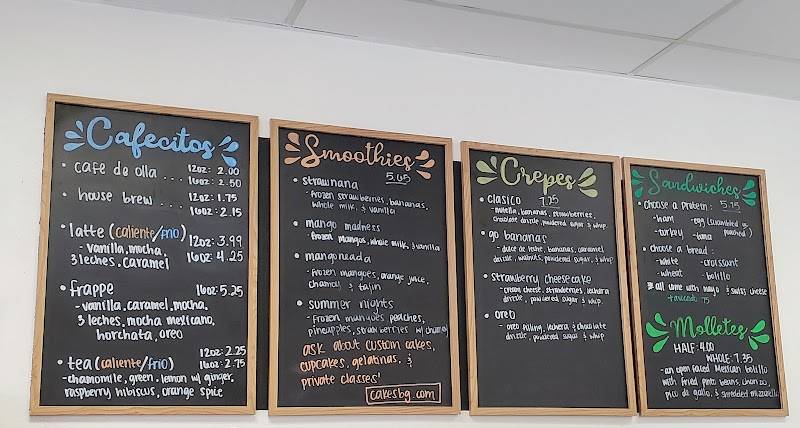 Cafecitos
• cafe de olla ... 12oz: 2.00
16oz: 2.50
• house brew ... 12oz: 1.75
16oz: 2.15
• latte (caliente/frio)
- vanilla, mocha, 12oz: 3.99
3 leches, caramel 16oz: 4.25
• frappe 16oz: 5.25
- vanilla, caramel, mocha,
3 leches, mocha mexicano,
horchata, oreo
• tea (caliente/frio) 12oz: 2.25
16oz: 2.75
- chamomile, green, lemon w/ ginger,
raspberry hibiscus, orange spice
Smoothies
• strawnana 5.65
- frozen strawberries, bananas,
whole milk, & vanilla
• mango madness
- frozen mangos, whole milk, & vanilla
• mangoneada
- frozen mangoes, orange juice,
chamoy & tajin
• summer nights
- frozen mangoes peaches,
pineapples, strawberries w/ chamoy
ask about custom cakes,
cupcakes, gelatinas, &
private classes!
cakesbg.com
Crepes
• clasico 7.25
- nutella, bananas, strawberries,
chocolate drizzle, powdered sugar & whip
• go bananas
- dulce de leche, bananas, caramel
drizzle, walnuts, powdered sugar, & whip
• strawberry cheesecake
- cream cheese, strawberries, lechera
drizzle, powdered sugar & whip
• oreo
- oreo filling, lechera & chocolate
drizzle, powdered sugar & whip
Sandwiches
• choose a protein: 5.75
- ham - egg (scrambled or
- turkey - tuna poached)
• choose a bread:
- white - croissant
- wheat - bolillo
* all come with mayo & swiss cheese
+ avocado .75
Molletes
HALF: 4.00
WHOLE: 7.35
- an open faced Mexican bolillo
with fried pinto beans, chorizo,
pico de gallo, & shredded mozzarella